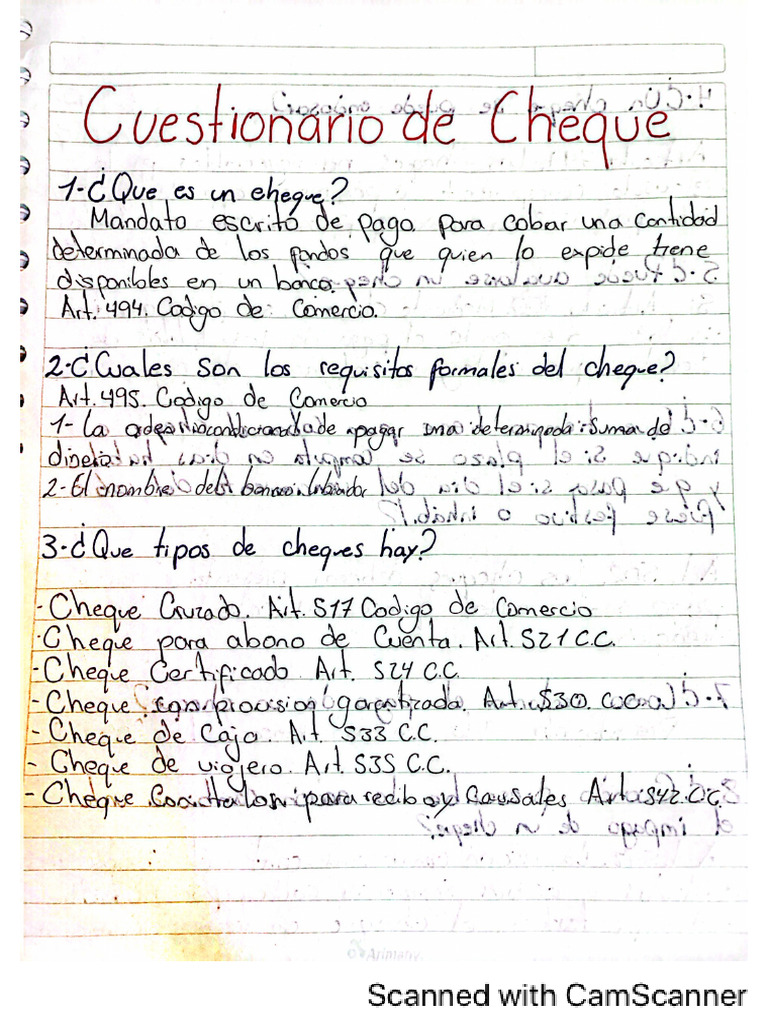 Cuestionario de Cheque
1-¿Que es un cheque?
Mandato escrito de pago para cobar una cantidad
determinada de los fondos que quien lo expide tiene
disponibles en un banco.
Art. 494. Codigo de Comercio.
2-¿Cuales son los requisitos formales del cheque?
Art. 495. Codigo de Comercio
1- La orden incondicionada de pagar una determinada suma de
dinero
2- El nombre del banco librador
3-¿Que tipos de cheques hay?
- Cheque Cruzado. Art. 517 Codigo de Comercio
- Cheque para abono de Cuenta. Art. 521 C.C.
- Cheque Certificado Art. 524 C.C.
- Cheque con provision garantizada. Art. 530. C.C.
- Cheque de Caja. Art. 533 C.C.
- Cheque de viajero. Art. 535 C.C.
- Cheque con talon para recibo y Causales Art. 542. C.C.
Arimany
Scanned with CamScanner